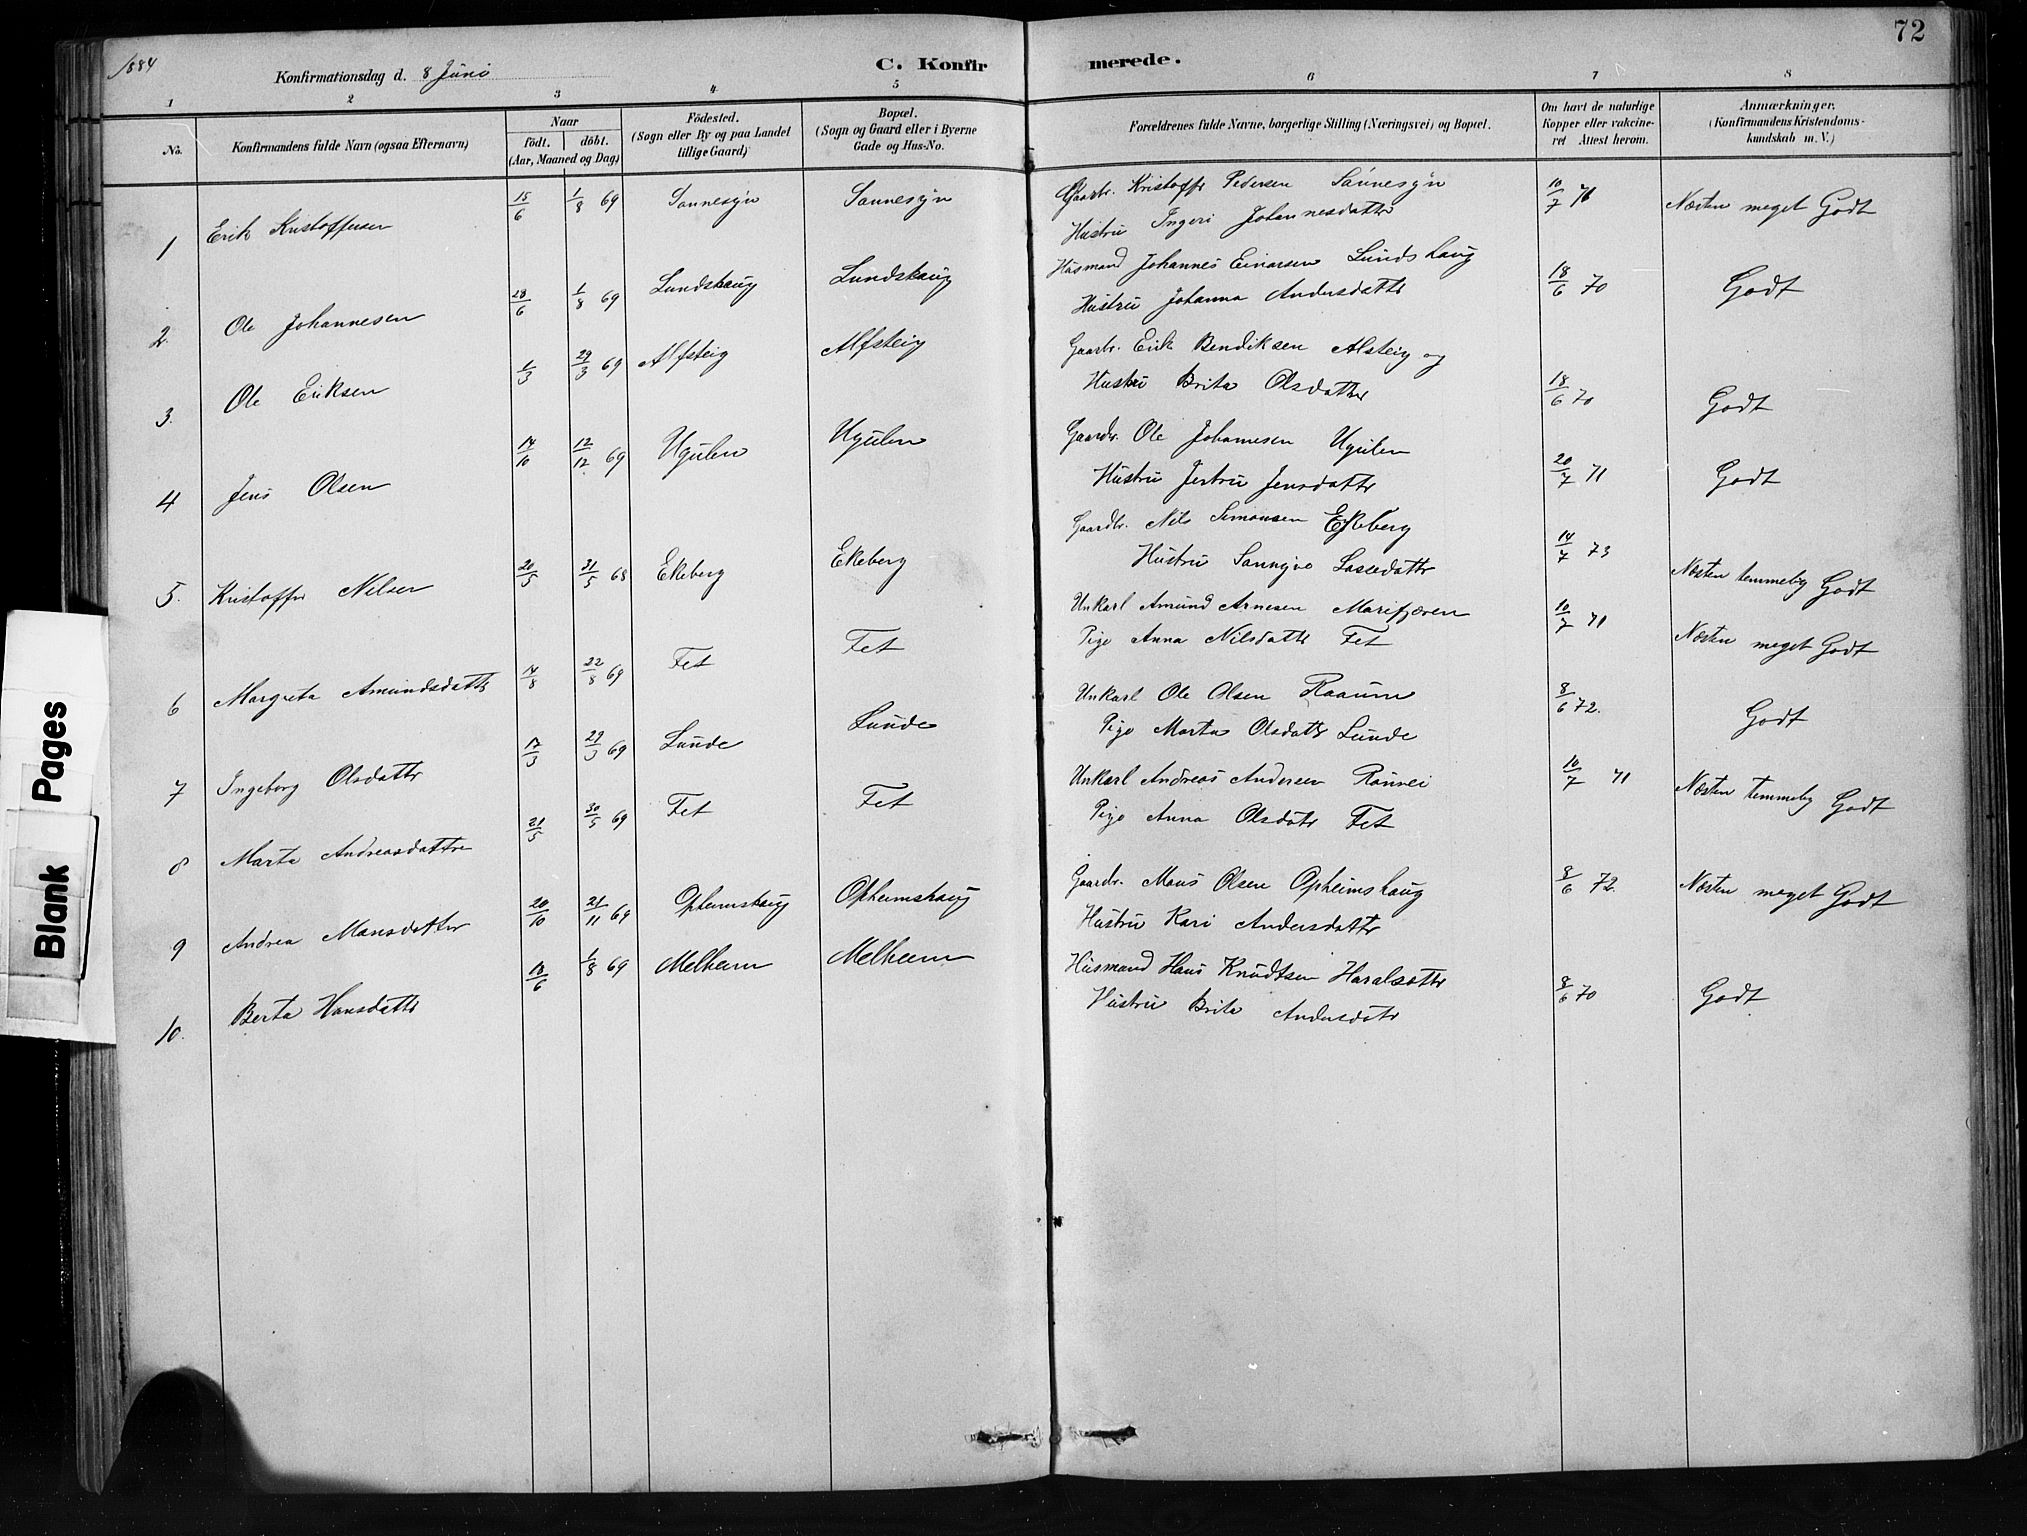 1884
72
Konfirmationsdag d. 8 Juni
C. Konfirmerede.
1 2 3 4 5 6 7 8
No.
Konfirmandens fulde Navn (ogsaa Efternavn)
Naar
födt. döbt.
(Aar, Maaned og Dag)
Födested.
(Sogn eller By og paa Landet
tillige Gaard)
Bopæl.
(Sogn og Gaard eller i Byerne
Gade og Hus-No.
Forældrenes fulde Navne, borgerlige Stilling (Næringsvei) og Bopæl.
Om havt de naturlige
Kopper eller vakcine-
ret Attest herom.
Anmærkninger.
(Konfirmandens Kristendoms-
kundskab m. V.)
1 Erik Kristoffersen 15/6 1/8 69 Sønnesyn Sønnesyn
Gaarbr. Kristoffer Pedersen Sønnesyn
Hustru Ingeri Johannesdatter
10/7 71 Næsten meget Godt
2. Ole Johannesen 28/6 1/8 69 Lundshaug Lundshaug
Husmand Johannes Einarsen Lundshaug
Hustru Johanna Andersdatter
18/6 70 Godt
3. Ole Eriksen 1/3 29/3 69 Alfsteig Alfsteig
Gaarbr. Erik Bendiksen Alsteig og
Hustru Brita Olsdatter
18/6 70 Godt
4 Jens Olsen 14/10 12/12 69 Ugulen Ugulen
Gaardbr. Ole Johannesen Ugulen
Hustru Jertru Jensdatter
20/7 71 Godt
5. Kristoffer Nilsen 20/5 31/5 68 Ekeberg Ekeberg
Gaardbr. Nils Simonsen Ekeberg
Hustru Sønneva Lassedatter
14/7 73 Næsten temmelig Godt
6 Margreta Amundsdatter 14/8 22/8 69 Fet Fet
Unkarl Amund Arnesen Marifjæren
Pige Anna Nilsdatter Fet
10/7 71 Næsten meget Godt
7 Ingeborg Olsdatter 17/3 29/3 69 Lunde Lunde
Unkarl Ole Olsen Raaum
Pige Marta Olsdatter Lunde
8/6 72. Godt
8 Marta Andreasdatter 21/5 30/5 69 Fet Fet
Unkarl Andreas Andersen Rønnei
Pige Anna Olsdatr Fet
10/7 71 Næsten temmelig Godt
9 Andrea Mansdatter 20/10 21/11 69 Opheimshaug Opheimshaug
Gaardbr. Mons Olsen Opheimshaug
Hustru Kari Andersdatter
8/6 72. Næsten meget Godt
10. Berta Hansdatter 18/6 1/8 69 Melheim Melheim
Husmand Hans Knudtsen
Hustru Brita Andersdatr
8/6 70 Godt
Blank Pages